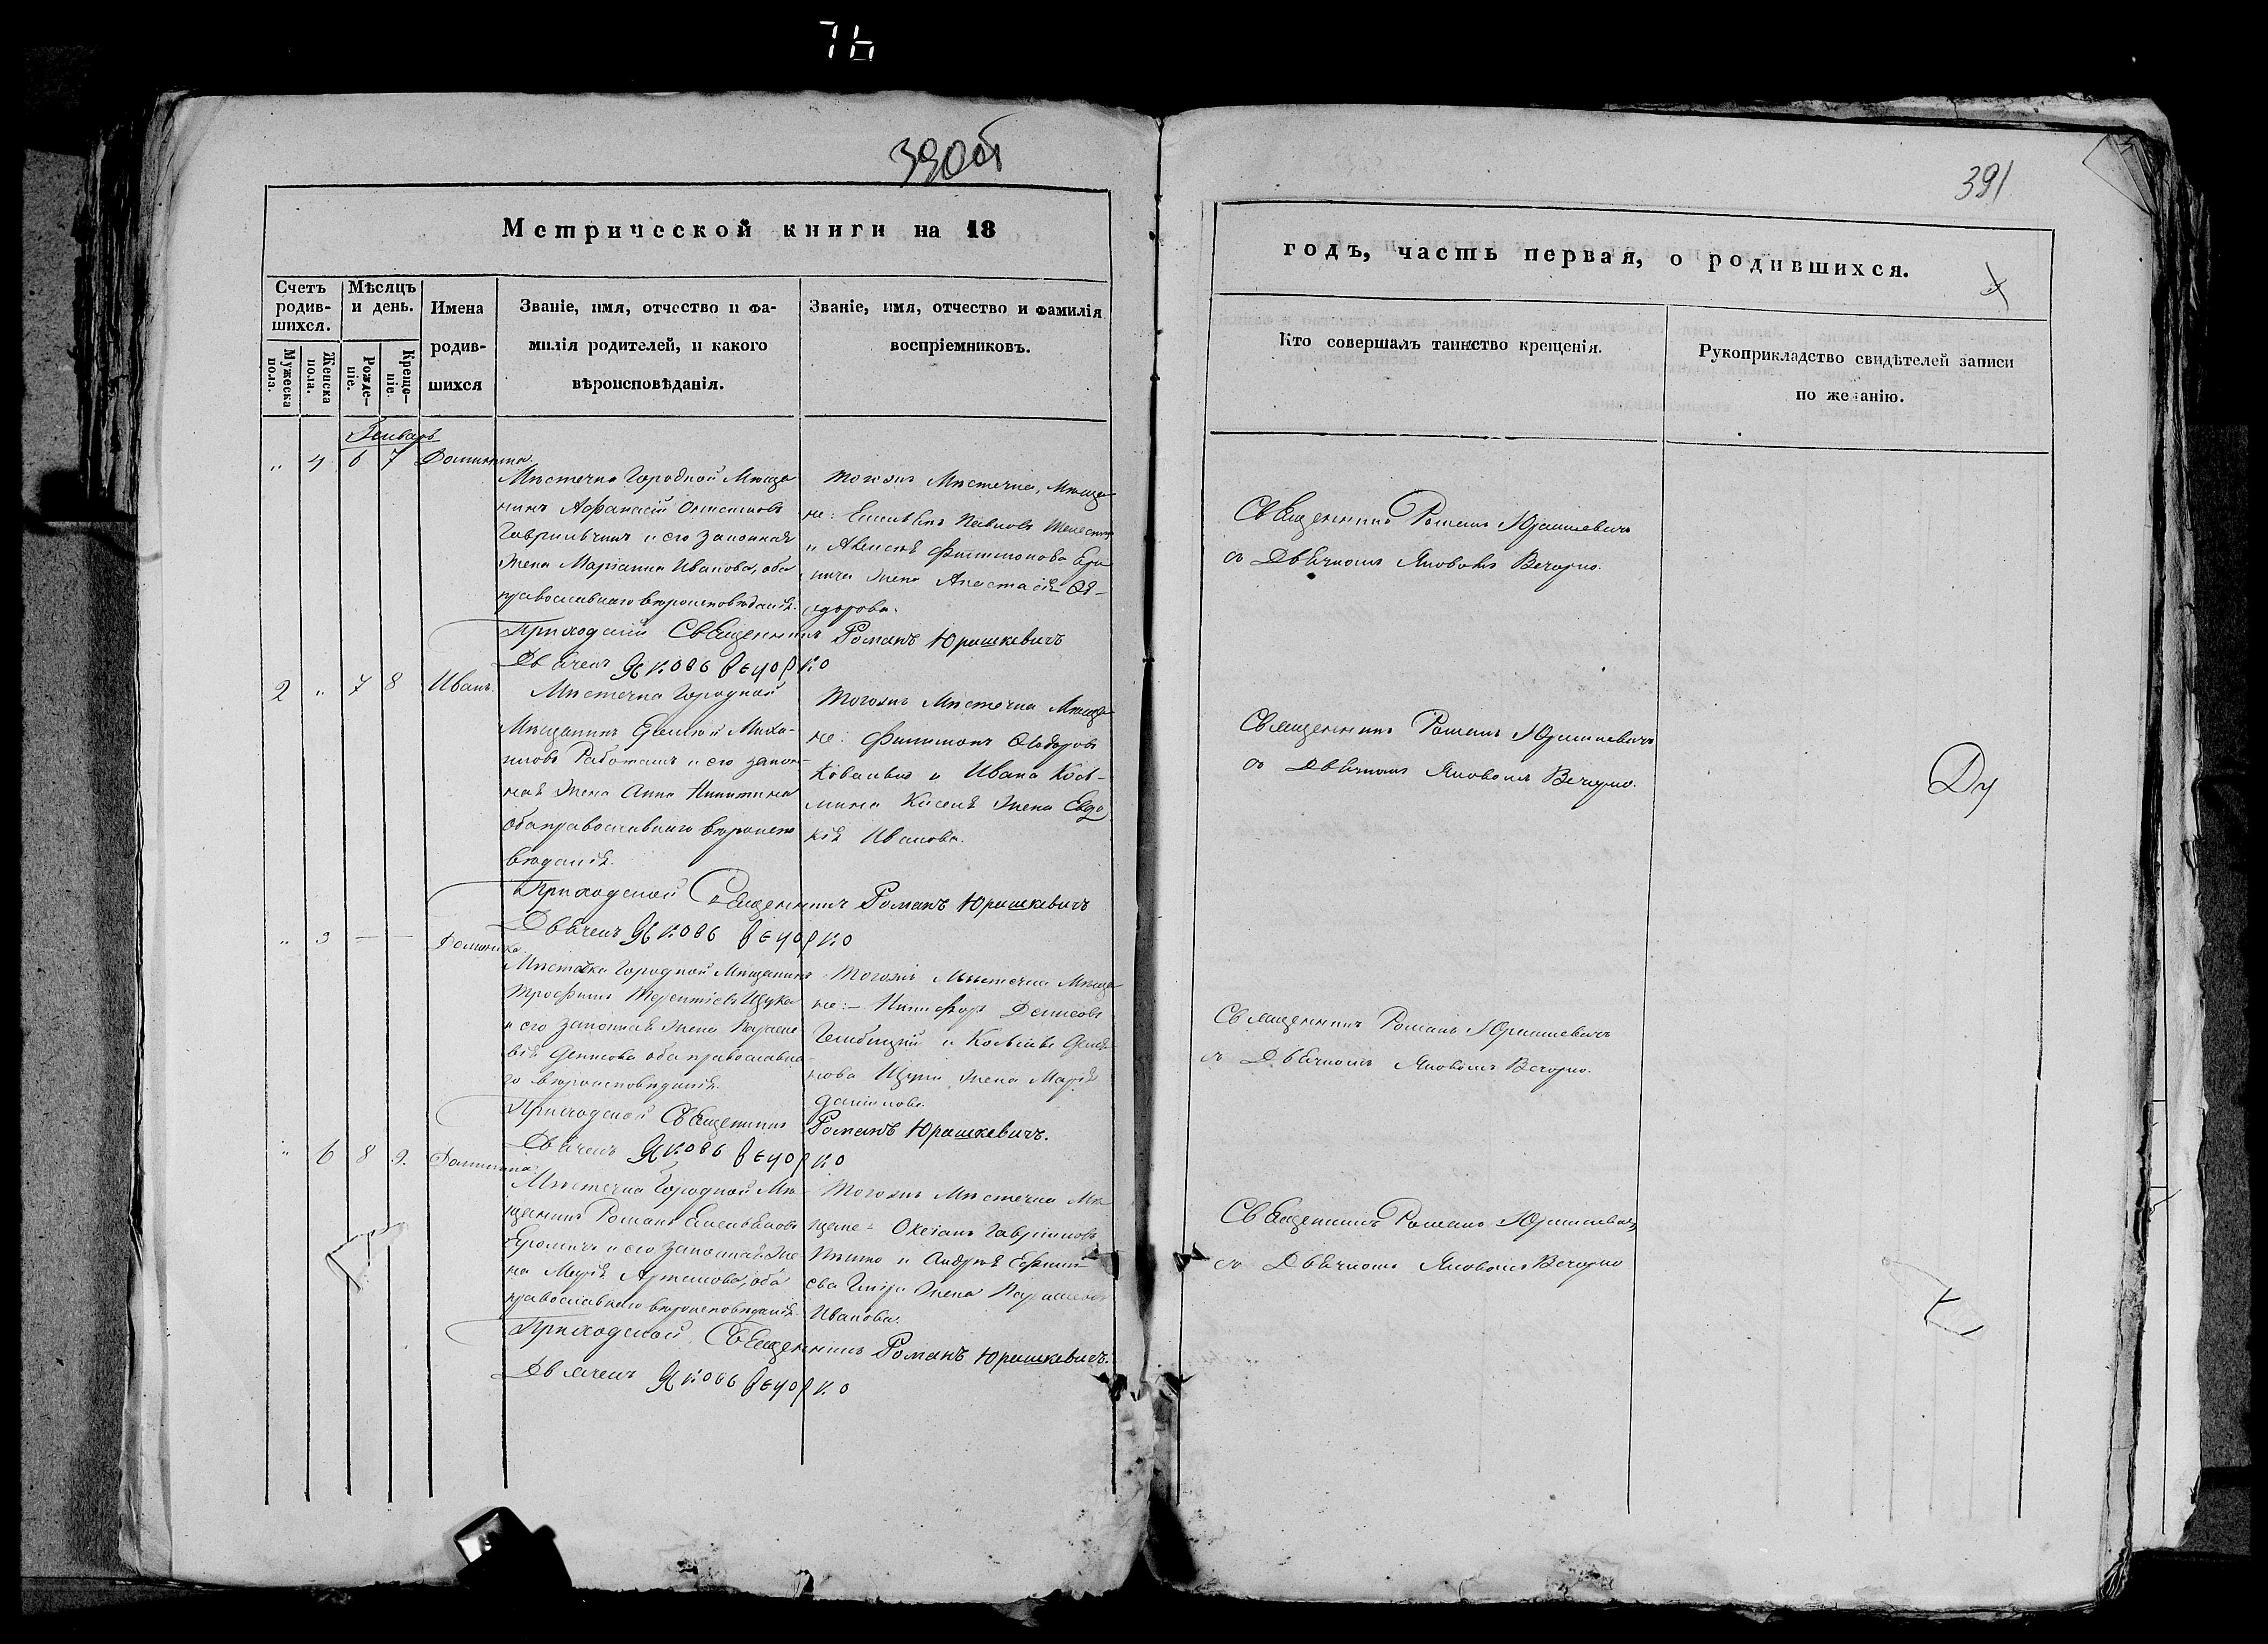 390об
391
Метрической книги на 18
годъ, часть первая, о родившихся.
Счетъ родившихся.
Мѣсяцъ и день.
Мужеска пола.
Женска пола.
Рожде-
ніе.
Креще-
ніе.
Имена
родив-
шихся
Званіе, имя, отчество и фа-
милія родителей, и какого
вѣроисповѣданія.
Званіе, имя, отчество и фамилія
воспріемниковъ.
Кто совершалъ таинство крещенія.
Рукоприкладство свидѣтелей записи
по желанію.
Генварь
„ 4 6 7 Доминика.
Мѣстечка Городной Мѣща-
нинъ Афанасій
и его законная
жена Маріанна Иванова, оба
православнаго вѣроисповѣданія.
Тогожъ Мѣстечка, Мѣща-
не: Павловъ
и Филимонова
жена Анастасія Ѳе-
дорова.
Священникъ Романъ Юрашкевичъ
съ Дьячкомъ Яковомъ Вечорко.
Приходскій Священникъ Романъ Юрашкевичъ
Дьячекъ Яковъ Вечорко
2 „ 7 8 Иванъ.
Мѣстечка Городной
Мѣщанинъ Миха-
иловъ и его закон-
ная жена Анна Никитина
оба православнаго вѣроиспо-
вѣданія.
Тогожъ Мѣстечка Мѣща-
не: Филимонъ Ѳедоровъ
и Ивана Кось-
мина жена Евдо-
кія Иванова.
Священникъ Романъ Юрашкевичъ
съ Дьячкомъ Яковомъ Вечорко.
Приходской Священникъ Романъ Юрашкевичъ
Дьячекъ Яковъ Вечорко
Доминика
Мѣстечка Городной Мѣщанинъ
Трофимъ Терентіевъ Щука
и его законная жена Параске-
вія Денисова оба православна-
го вѣроисповѣданія.
Тогожъ Мѣстечка Мѣща-
не: Никифоръ Денисовъ
жена Марія
Данилова.
Священникъ Романъ Юрашкевичъ
съ Дьячкомъ Яковомъ Вечорко.
Приходской Священникъ Романъ Юрашкевичъ.
Дьячекъ Яковъ Вечорко
„ 6 8 9. Доминика.
Мѣстечка Городной Мѣ-
щанинъ Романъ
и его законная же-
на Марія Артемова, оба
православнаго вѣроисповѣданія.
Тогожъ Мѣстечка Мѣ-
щане:
и Андрея
жена
Иванова.
Священникъ Романъ Юрашкевичъ
съ Дьячкомъ Яковомъ Вечорко
Приходской Священникъ Романъ Юрашкевичъ.
Дьячекъ Яковъ Вечорко